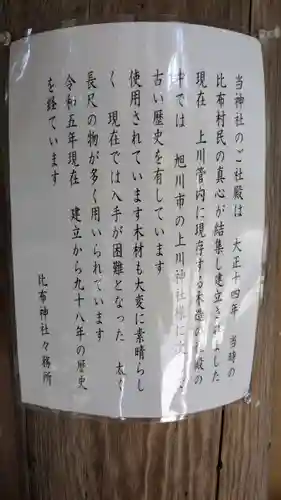 当神社のご社殿は　大正十四年　当時の
比布村民の真心が結集し建立されました
現在　上川管内に現存する木造の社殿の
中では　旭川市の上川神社様に次
古い歴史を有しています
使用されています木材も大変に素晴らし
く　現在では入手が困難となった　太く
長尺の物が多く用いられています
令和五年現在　建立から九十八年の歴史
を経ています
比布神社々務所